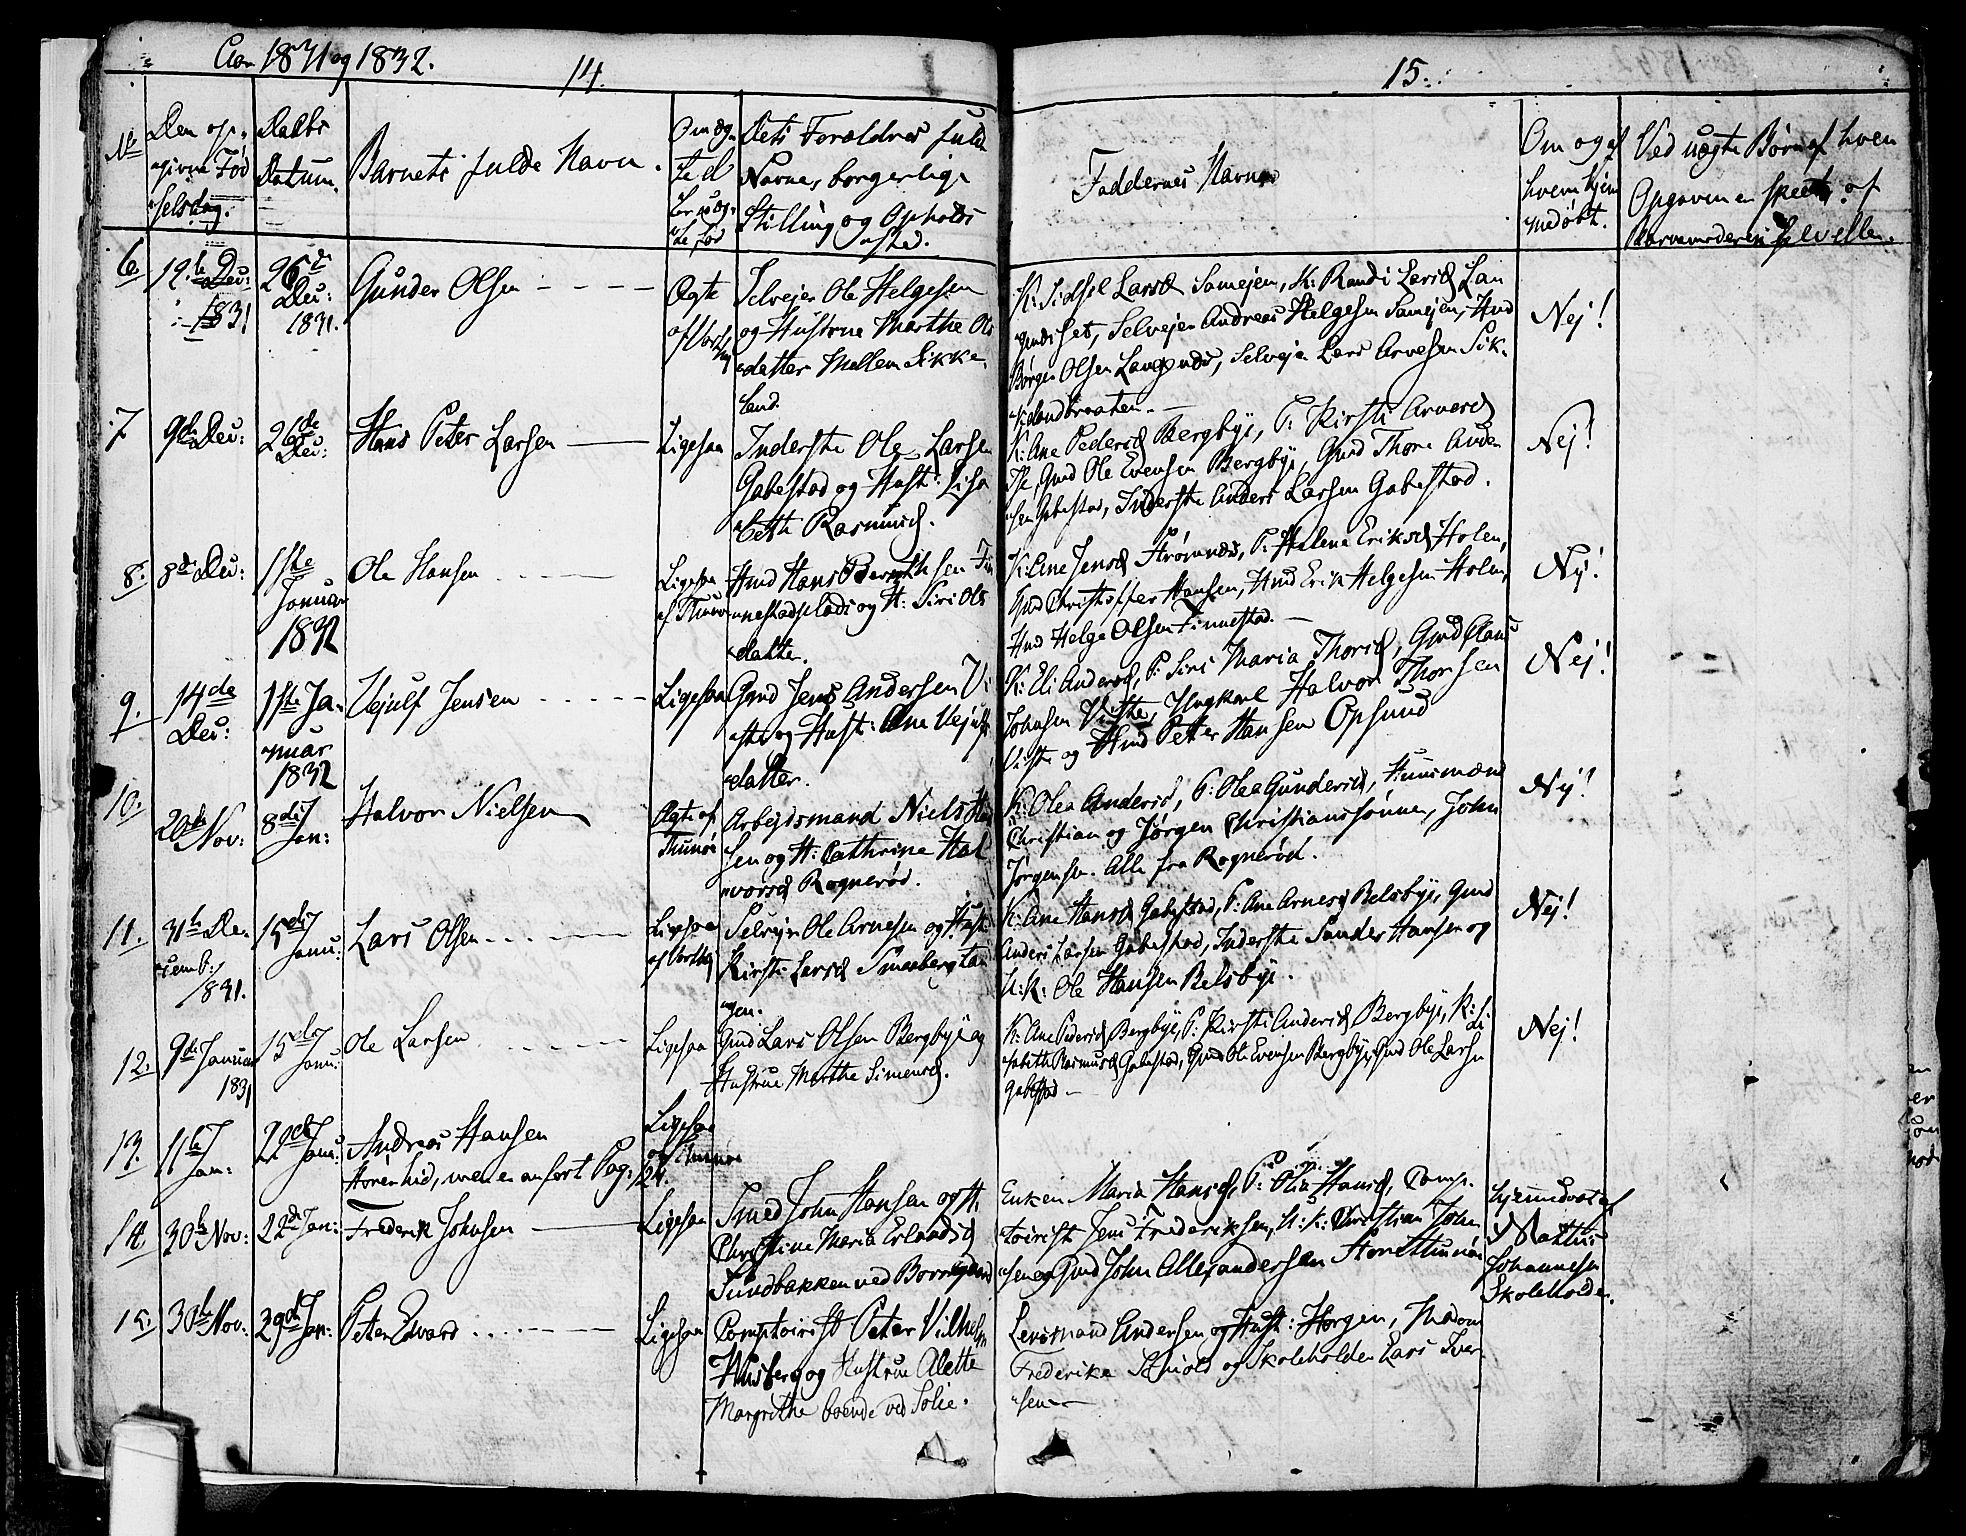 Aar 1831 og 1832.
14.
15.
No
Den op-
givne Fød
selsdag.
Daabs
Datum.
Barnets fulde Navn.
Om æg-
te el
Dets Forældres fulde
Navne, borgerlige
Stilling og Opholds
sted.
Faddernes Navne
Om og af
hvem hjem
medøbt.
Ved uægte Børn af hvem
Opgaven er skeet, af
Barnemoderen selv eller
6. 12te Dec: 1831
26de Dec: 1831.
Gunder Olsen
Ægte
Selvejer Ole Helgesen
og Hustrue Marthe Ols
datter Mellem Sikke
land.
K: Sidsel Larsd Somejen, K: Randi Larsd Lan
gnæsset, Selvejer Andreas Helgesen Somejen, Hmd
Børger Olsen Langnæs, Selvejer Lars Arvesen Sik-
kelandbraaten.
Nej!
7. 9de Dec:
26de Dec:
Hans Peter Larsen
Ligesaa
Inderste Ole Larsen
Gabestad og Hust: Lisa
beth Rasmusd.
K: Ane Pedersd Bergbye, P: Kirsti Arvesd
Gmd Ole Evensen Bergbye, Gmd Thore Ander
sen Gabestad, Inderste Anders Larsen Gabestad.
Nej!
8. 8de Dec:
1ste Januar 1832
Ole Hansen
Ligesaa af Thunø
Hmd Hans Berntsen Fin
nestadplads og H: Siri Ols
datter.
K: Ane Jensd Strømnæs, P: Helene Eriksd Holen,
Gmd Christoffer Hansen, Hmd Erik Helgesen Holen,
Hmd Helge Olsen Finnestad.
Nej!
9. 14de Dec:
1ste Januar 1832
Vejulf Jensen
Ligesaa
Gmd Jens Andersen Vi
ste og Hust: Ane Vejulfs
datter.
K: Eli Andersd, P: Siri Maria Thorsd, Gmd Claus
Johnsen Viste, Ungkarl Halvor Thorsen
Viste og Hmd Petter Hansen Opsund
Nej!
10. 20de Nov:
8de Jan:
Halvor Nielsen
Ægte af Thunø
Arbejdsmand Niels Han
sen og H: Cathrine Hal
vorsd Rognerød.
K: Olea Andersd, P: Olea Gundersd, Huusmænd
Christian og Jørgen Christianssønner, John
Jørgensen. Alle fra Rognerød.
Nej!
11. 31te Decemb: 1831.
15de Janu:
Lars Olsen
Ligesaa
Selvejer Ole Arnesen og Hust:
Kirsti Larsd Smaabergtan
gen.
K: Ane Hansd Gabestad, P: Ane Arnesd Belsbye, Gmd
Anders Larsen Gabestad, Inderste Sander Hansen og
U: K: Ole Hansen Belsbye.
Nej!
12. 9de Januar 1831
15de Janu:
Ole Larsen
Ligesaa
Gmd Lars Olsen Bergbye og
Hustrue Marthe Simensd.
K: Ane Pedersd Bergbye, P: Kirsti Andersd Bergbye, K: Li-
sabeth Rasmusd Gabestad, Gmd Ole Evensen Bergbye, Gmd Ole Larsen
Gabestad
Nej!
13. 11te Jan:
22de Janu:
Andreas Hansen
Ligesaa af Thunø
Hører hid, men er anført Pag: 24.
14. 30te Nov:
22de Jan:
Frederik Johnsen
Ligesaa
Smed John Hansen og H.
Christine Maria Erlandsd
Sundbakken ved Borregaard
Enken Maria Hansd, P: Olia Hansd, Comp-
toirist Jens Frederiksen, U: K: Christian John
sen og Gmd John Allexandersen Store Thunøe
hjemmedøbt af
Matthis
Johannesen
Skoleholder.
15. 30te Nov:
29de Jan:
Peter Edvard
Ligesaa
Comptoirist Peter Vilhelm
og Hustrue Alette
Margrethe boende ved Solie.
Lensmand Andersen og Hust: Horgen, Madam
Frederike og Skoleholder Lars Iver
sen